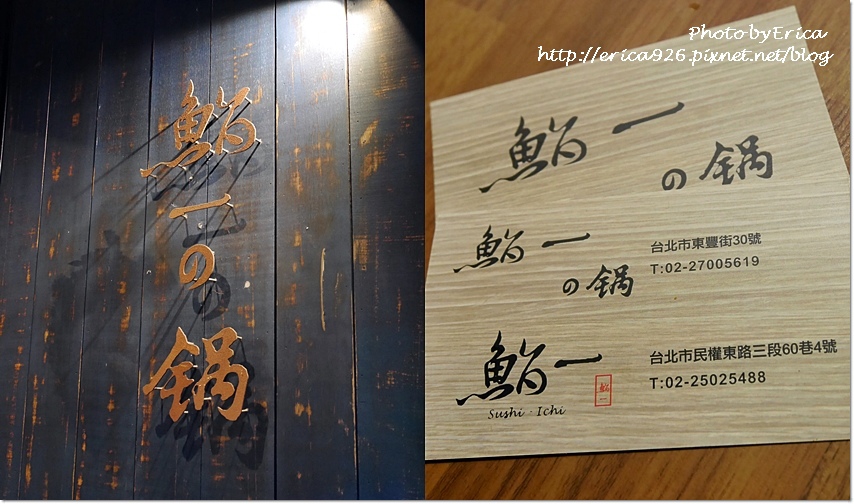 鮨
一
の
鍋
Photo by Erica
http://erica926.pixnet.net/blog
鮨一
の鍋
鮨一
の鍋
台北市東豐街30號
T:02-27005619
鮨一
Sushi · Ichi
鮨一
台北市民權東路三段60巷4號
T:02-25025488